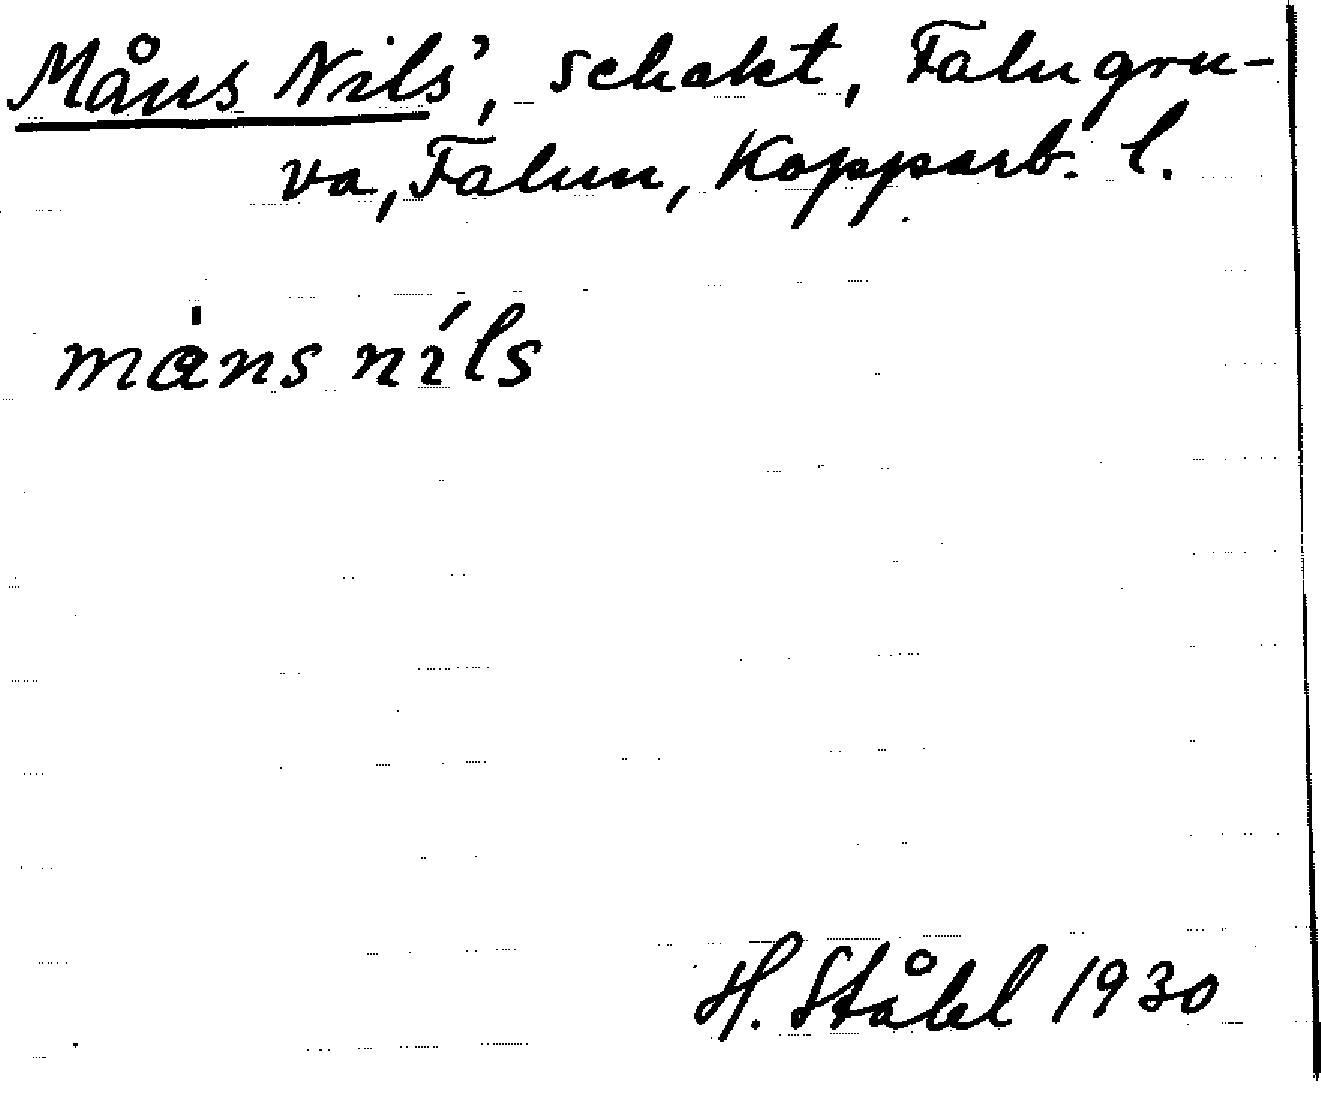 Måns Nils', schakt, Falu gru-
va, Falun, Kopparb. l.
måns nils
H. Ståhl 1930